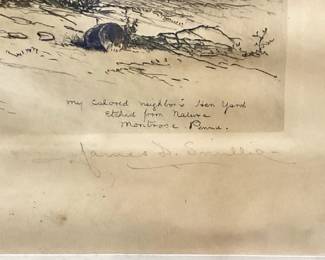 my colored neighbor's Hen Yard
Etched from Nature
Montrose Penna.
James D. Smillie